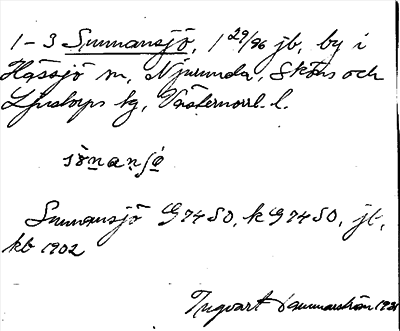 1-3 Sunnansjö, 1 29/96 jb, by i
Hässjö sn, Njurunda, Sköns och
Ljustorps tg, Västernorrl. l.
sònansjö
Sunnansjö G 74 SO, k G 74 SO, jb,
kb 1902
Ingvart 1931